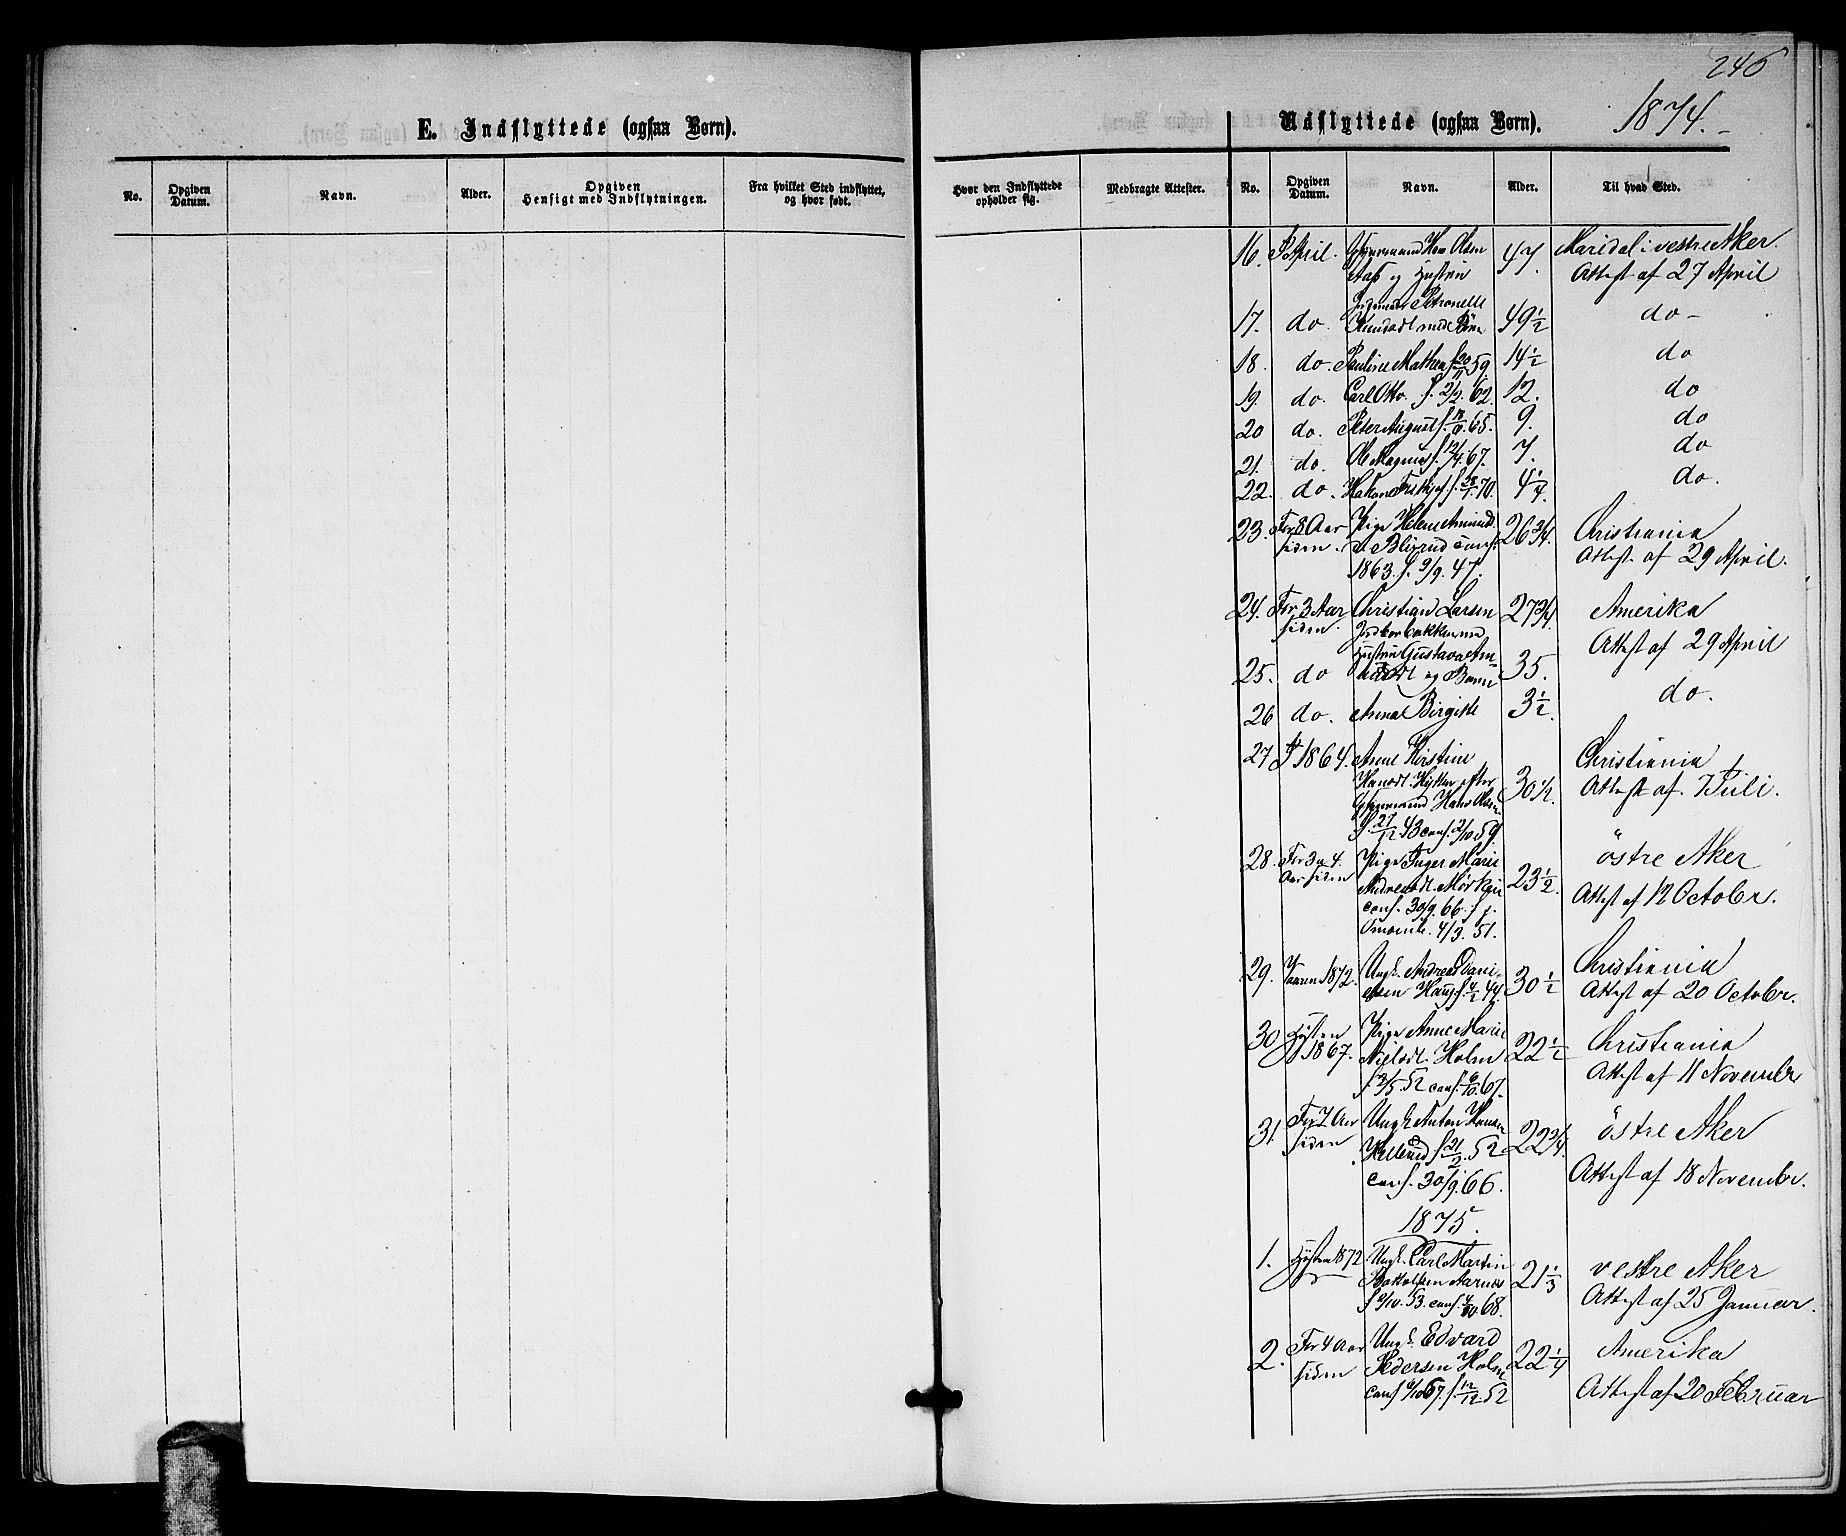 246
E. Indflyttede (ogsaa Børn).
Udflyttede (ogsaa Børn).
1874.
No.
Opgiven Datum.
Navn.
Alder.
Opgiven Hensigt med Indflytningen.
Fra hvilket Sted indflyttet, og hvor født.
Hvor den Indflyttede opholder sig.
Medbragte Attester.
No.
Opgiven Datum.
Navn.
Alder.
Til hvad Sted.
16. April. Olsen 47. Maridal i vestre Aker.
og Hustru Attest af 27 April
Petronelle
17. do. med Børn 49½ do
18. do. Pauline Mathea f. 59. 14½ do
19. do. Carl Otto. f. 2/2. 62. 12. do
20 do. Peter August f. 65. 9. do
21. do. Ole Magnus f. 12/4. 67. 7. do
22. do. f. 70. 4¼. do.
23. For 8 Aar Pige Helene 26¾. Christiania
siden. conf. Attest af 29 April.
1863. f. 9/9. 47.
24. For 3 Aar Christian Larsen 27¾. Amerika
siden. Attest af 29 April
Hustru Gustava
25. do og Børn 35.
do.
26 do. Anna Birgitte 3½.
27 1864. Anne Kirstine Christiania
30½. Attest af. 7 Juli.
Hans Olsen
f. 27/12 43 conf. 2/10 59.
28. For 3 a 4. Pige Inger Marie østre Aker
Aar siden 23½. Attest af 12 October.
conf. 30/9. 66. f.
4/3. 51.
29. Vaaren 1872. Ungk. Andreas Dani- Christiania
elsen Haug f. 44. 30½ Attest af 20 October.
30 Høsten Pige Anne Marie Christiania
1867. Nielsdt. Holm 22½
f. 2/5. 52 conf. 6/10. 67. Attest af 11 November
31. For 7 Aar Ungk. Anton Hansen østre Aker
siden Hellerud f. 21/2. 52 22¾.
conf. 30/9. 66. Attest af 18 November.
1875.
1. Høsten 1872 Ungk. Carl Martin vestre Aker
21⅓
f. 53. conf. 68. Attest af 25 Januar.
2. For 4 Aar Ungk. Edvard Amerika
siden Pedersen Holm 22¼
conf. 6/10 67. f. 12/12. 52 Attest af 20 Februar